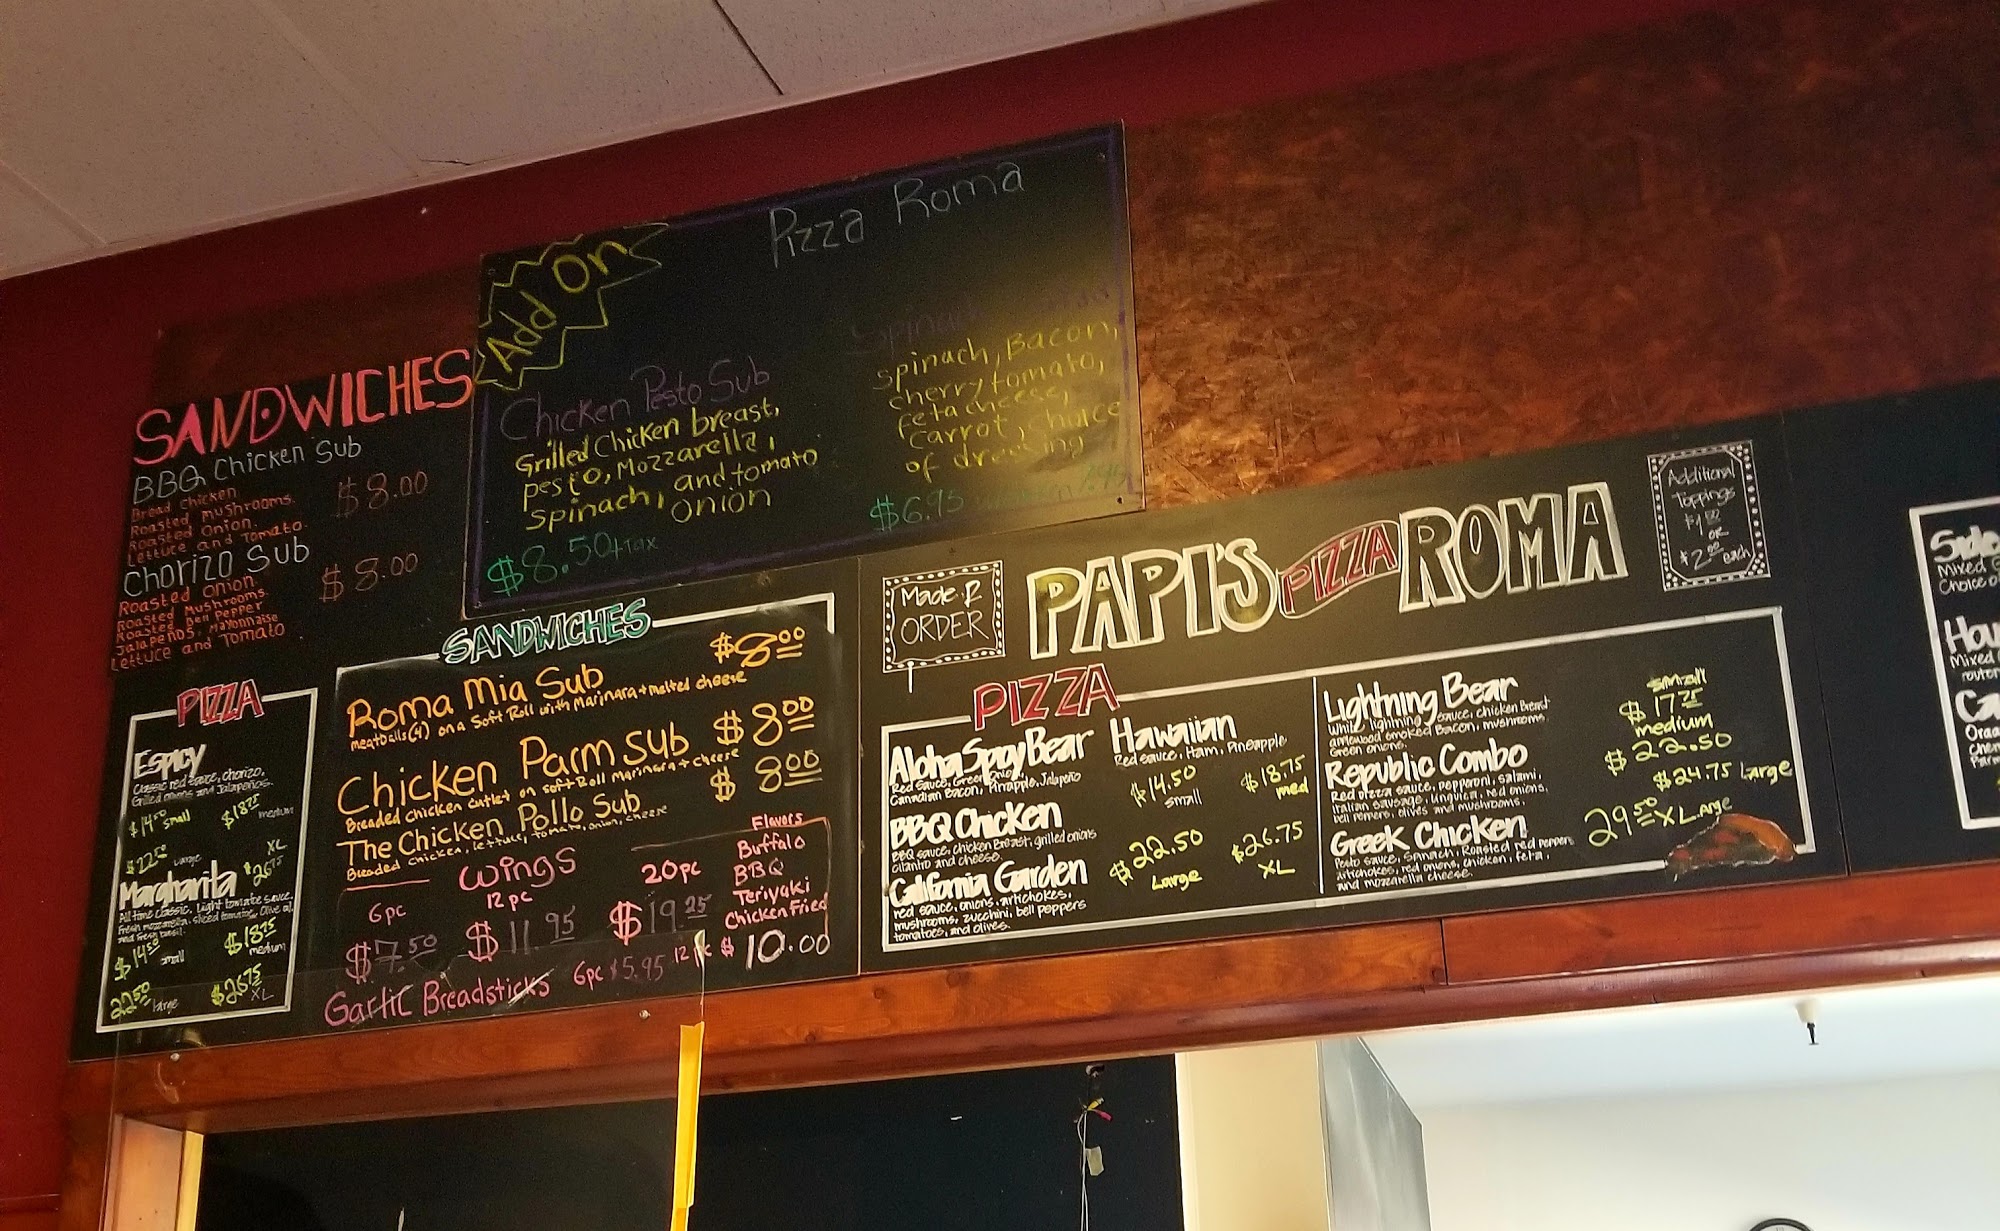 Pizza Roma
Add On
Chicken Pesto Sub
Grilled Chicken breast,
pesto, Mozzarella,
Spinach, and tomato
onion
$8.50+tax
Spinach
Spinach, Bacon,
cherry tomato,
feta cheese,
carrot, choice
of dressing
$6.95
SANDWICHES
BBQ Chicken Sub
$8.00
Bread Chicken
Roasted mushrooms.
Roasted onion.
Lettuce and Tomato.
Chorizo Sub
$8.00
Roasted onion.
Roasted Mushrooms.
Roasted Bell Pepper
Jalapenos, Mayonnaise
Lettuce and Tomato
PIZZA
Espicy
Classic red sauce, chorizo,
Grilled onions and Jalapeños.
$14.50 small
$18.75 medium
$22.50 Large
XL
$26.75
Margharita
All time classic. Light tomatoe sauce.
Fresh mozzarella, sliced tomatoe, olive oil,
and fresh basil.
$14.50 small
$18.75 medium
22.50 large
$26.75 XL
SANDWICHES
Roma Mia Sub $8.00
meatballs (4) on a Soft Roll with Marinara + melted cheese
Chicken Parm Sub $8.00
Breaded chicken cutlet on soft Roll Marinara + cheese
The Chicken Pollo Sub $8.00
Breaded chicken, lettuce, tomato, onion, cheese
Wings
6pc
12pc
20pc
$7.50
$11.95
$19.25
Flavors
Buffalo
BBQ
Teriyaki
Chicken Fried
Garlic Breadsticks 6pc $5.95 12pc $10.00
Made 2
ORDER
PAPI'S PIZZA ROMA
Additional
Toppings
$1.50
OR
$2.00 each
PIZZA
Aloha Spicy Bear
Red Sauce, Green Onio
Canadian Bacon, Pinapple, Jalapeño
BBQ Chicken
BBQ sauce, chicken Breast, grilled onions
Cilantro and cheese.
California Garden
red sauce, onions, artichokes,
mushrooms, zucchini, bell peppers
tomatoes, and olives.
Hawaiian
Red sauce, Ham, Pineapple
$14.50
small
$18.75
med
$22.50
Large
$26.75
XL
Lightning Bear
White lightning sauce, chicken Breast
applewood smoked Bacon, mushrooms
Green onions.
Republic Combo
Red pizza sauce, pepperoni, salami,
italian sausage, linguica, red onions,
bell pepers, olives and mushrooms.
Greek Chicken
Pesto sauce, Spinach, Roasted red peppers
artichokes, red onions, chicken, feta,
and mozzarella cheese.
small
$17.25
medium
$22.50
$24.75 Large
29.50 XLarge
Side
Mixed
Choice o
Hou
Mixed